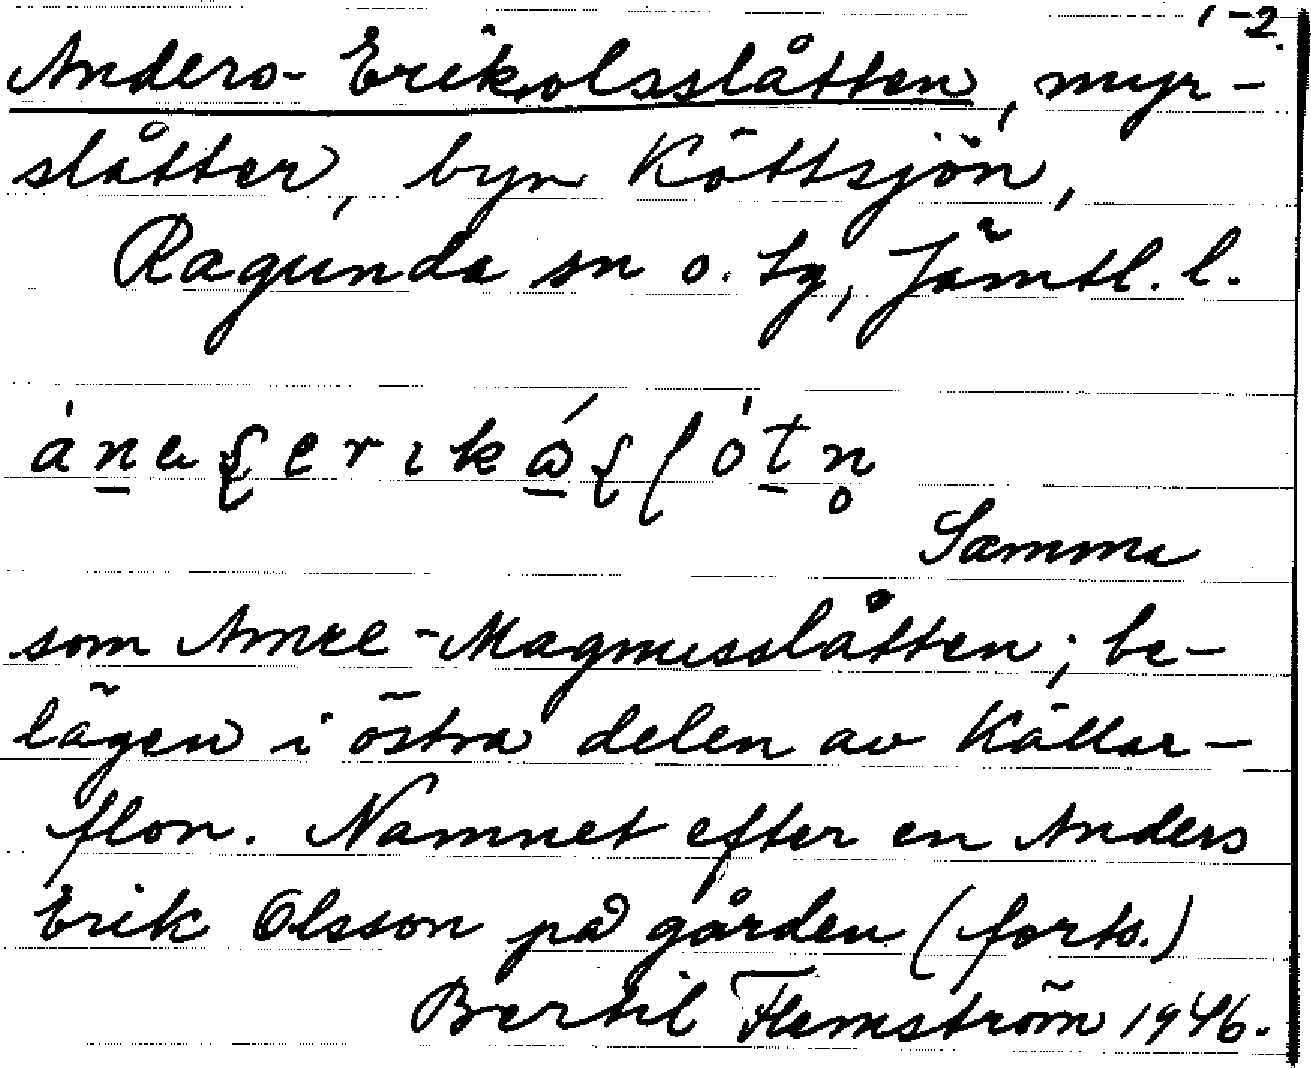 1-2.
Anders-Erikolsslåtten, myr-
slåtter, byn Köttsjön,
Ragunda sn o. tg, Jämtl. l.
Samma
som Amre-Magnusslåtten; be-
lägen i östra delen av Källar-
flon. Namnet efter en Anders
Erik Olsson på gården (forts.)
Bertil Flemström 1946.